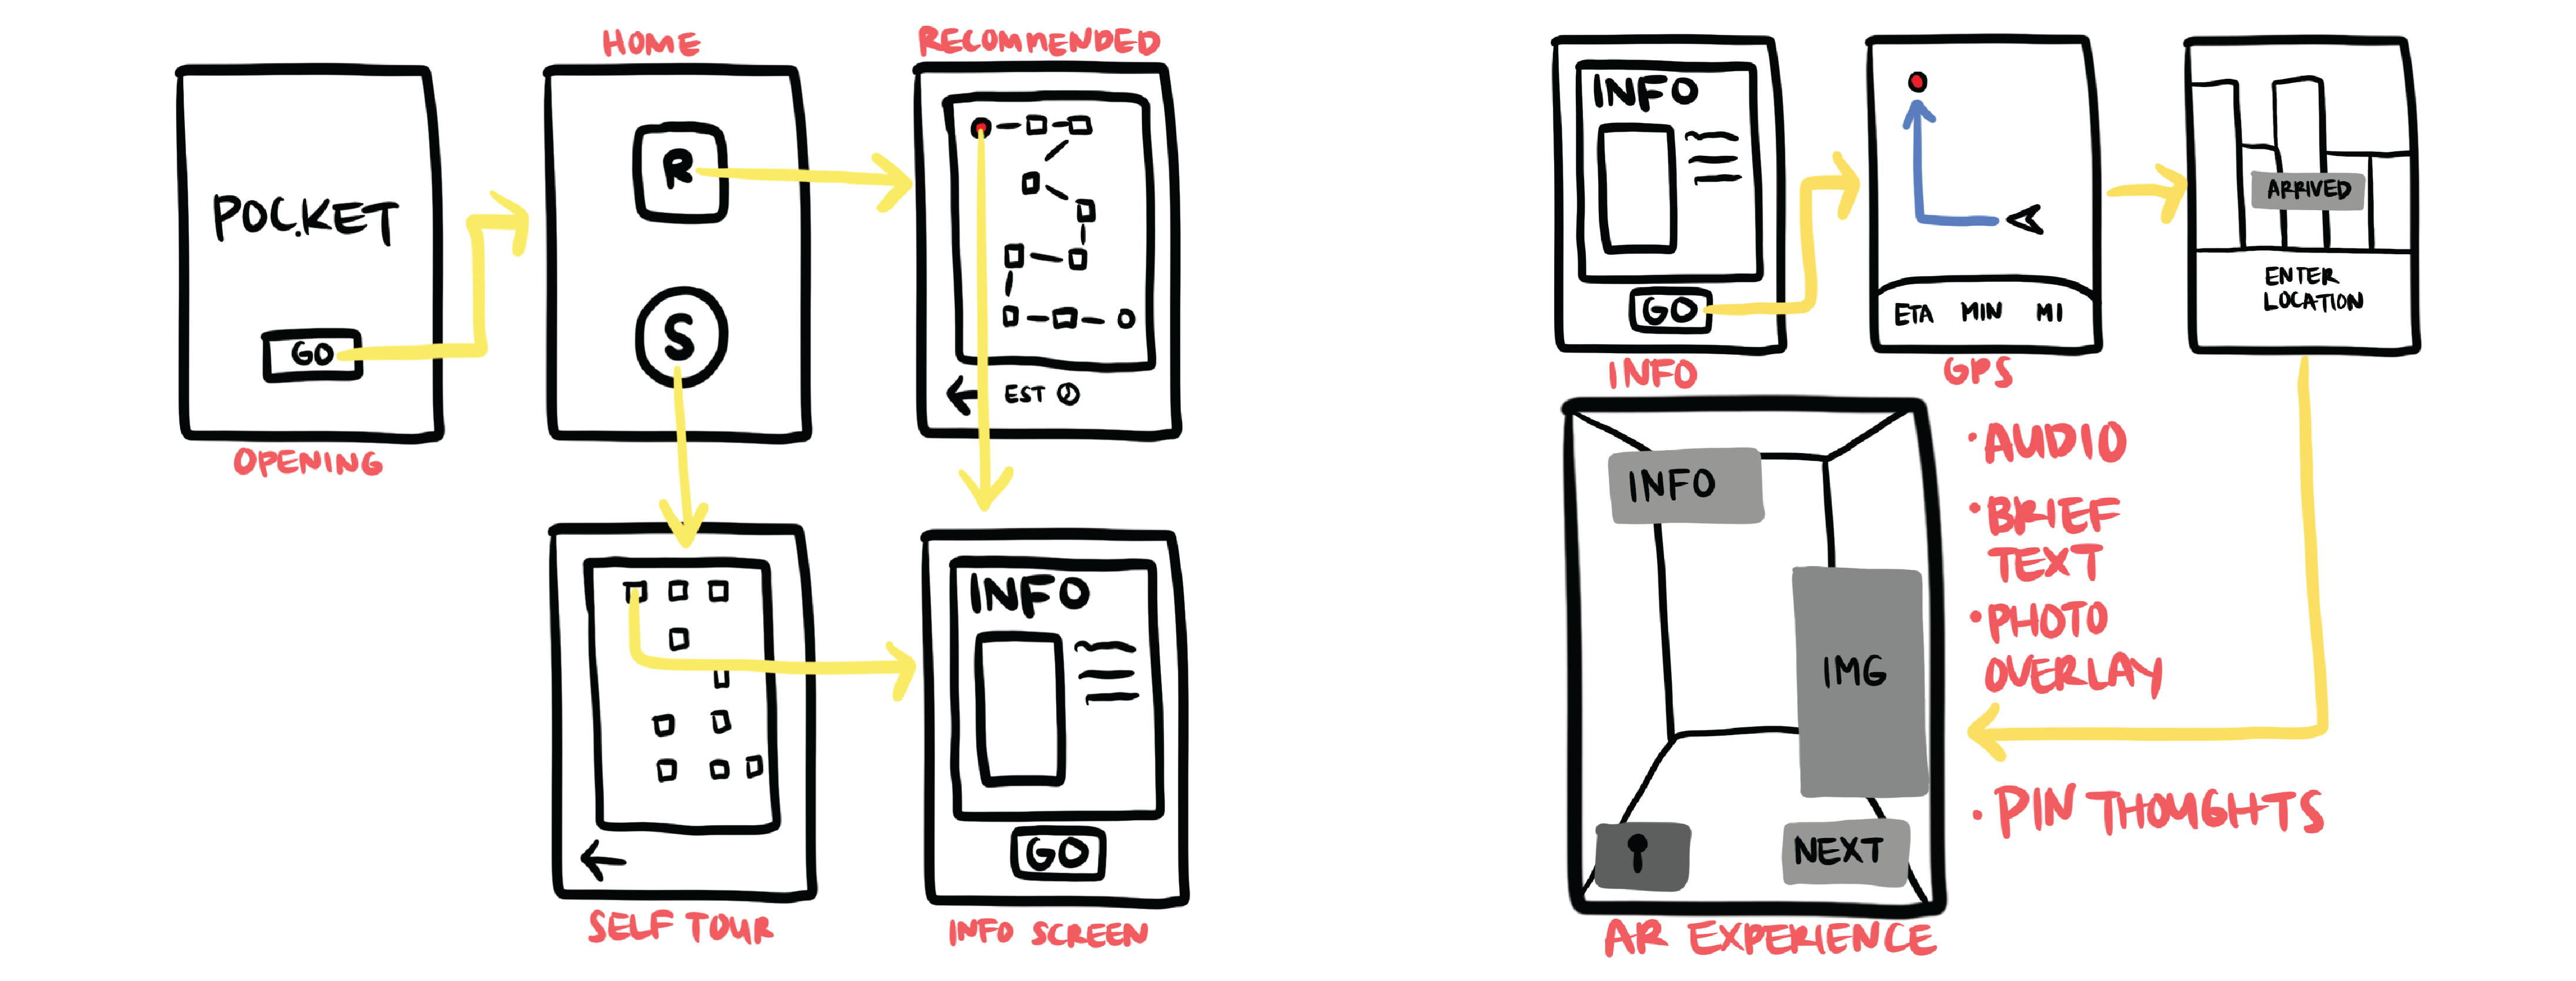 HOME
RECOMMENDED
POCKET
GO
OPENING
R
S
EST
SELF TOUR
INFO
GO
INFO SCREEN
INFO
GO
INFO
ETA MIN MI
GPS
ARRIVED
ENTER
LOCATION
INFO
IMG
NEXT
AR EXPERIENCE
· AUDIO
· BRIEF
TEXT
· PHOTO
OVERLAY
· PIN THOUGHTS